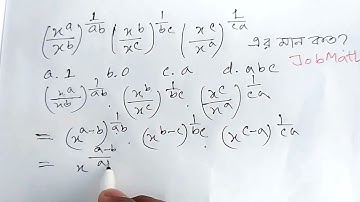 (x^a/x^b)^{1/ab} (x^b/x^c)^{1/bc} (x^c/x^a)^{1/ca} এর মান কত?
JobMath
a. 1 b. 0 c. a d. abc
(x^a/x^b)^{1/ab} . (x^b/x^c)^{1/bc} . (x^c/x^a)^{1/ca}
= (x^{a-b})^{1/ab} . (x^{b-c})^{1/bc} . (x^{c-a})^{1/ca}
= x^{a-b/ab}